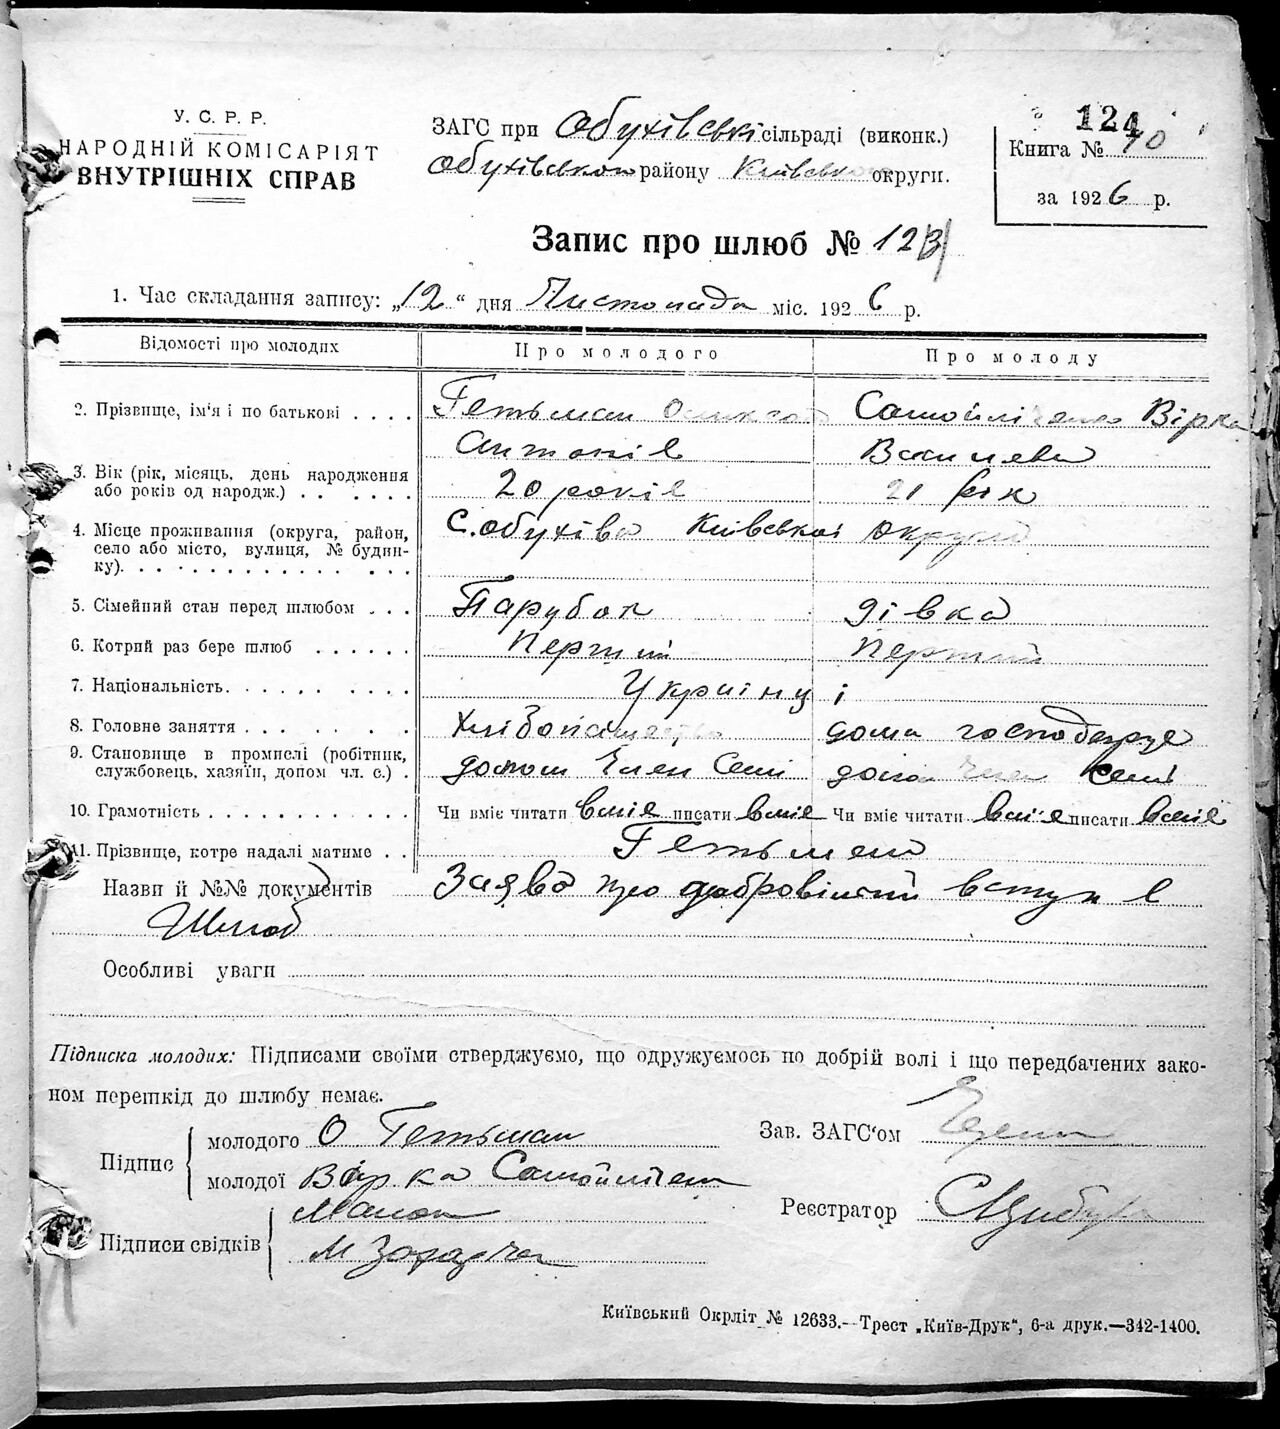 У. С. Р. Р.
НАРОДНІЙ КОМІСАРІЯТ
ВНУТРІШНІХ СПРАВ
ЗАГС при Обухівські сільраді (виконк.)
Обухівського району Київської округи.
124
Книга № 10
за 1926 р.
Запис про шлюб № 123
1. Час складання запису: „12“ дня Листопада міс. 1926 р.
Відомості про молодих Про молодого Про молоду
2. Прізвище, ім'я і по батькові . . . . Гетьман Олександ Самойліченко Вірка
Антонів Василева
3. Вік (рік, місяць, день народження
або років од народж.) . . . . . . 20 років 21 рік
4. Місце проживання (округа, район, с. Обухівка Київської округи
село або місто, вулиця, № будин-
ку). . . . . . . . . . . . . . . .
5. Сімейний стан перед шлюбом . . . Парубок дівка
6. Котрий раз бере шлюб . . . . . . Перший Перший
7. Національність. . . . . . . . . . Українці
8. Головне заняття . . . . . . . . . хлібопашество дома господарує
9. Становище в промислі (робітник,
службовець, хазяїн, допом чл. с.) . допом член семі допом член семі
10. Грамотність . . . . . . . . . . . . Чи вміє читати вміє писати вміє Чи вміє читати вміє писати вміє
11. Прізвище, котре надалі матиме . . Гетьман
Назви й №№ документів Заява про добровільний вступ в
Шлюб
Особливі уваги
Підписка молодих: Підписами своїми стверджуємо, що одружуємось по добрій волі і що передбачених зако-
ном перешкід до шлюбу немає.
Підпис
молодого О Гетьман
молодої Вірка Самойліченко
Зав. ЗАГС'ом
Реєстратор
Підписи свідків
Київський Окрліт № 12633.—Трест „Київ-Друк“, 6-а друк.—342-1400.